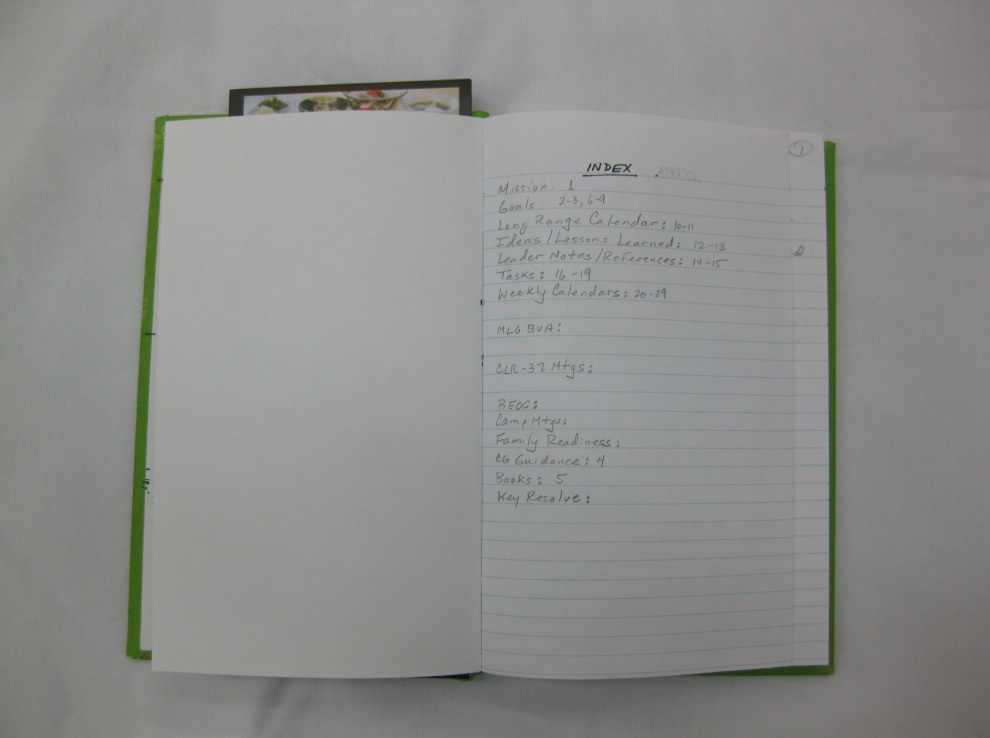 INDEX
Mission. 1
Goals. 2-3, 6-9
Long Range Calendar: 10-11
Ideas/Lessons Learned: 12-13
Leader Notes/References: 14-15
Tasks: 16-19
Weekly Calendars: 20-29
MLG BUA:
CLR-37 Mtgs:
BEOG:
Camp Mtgs:
Family Readiness:
CG Guidance: 4
Books: 5
Key Resolve: